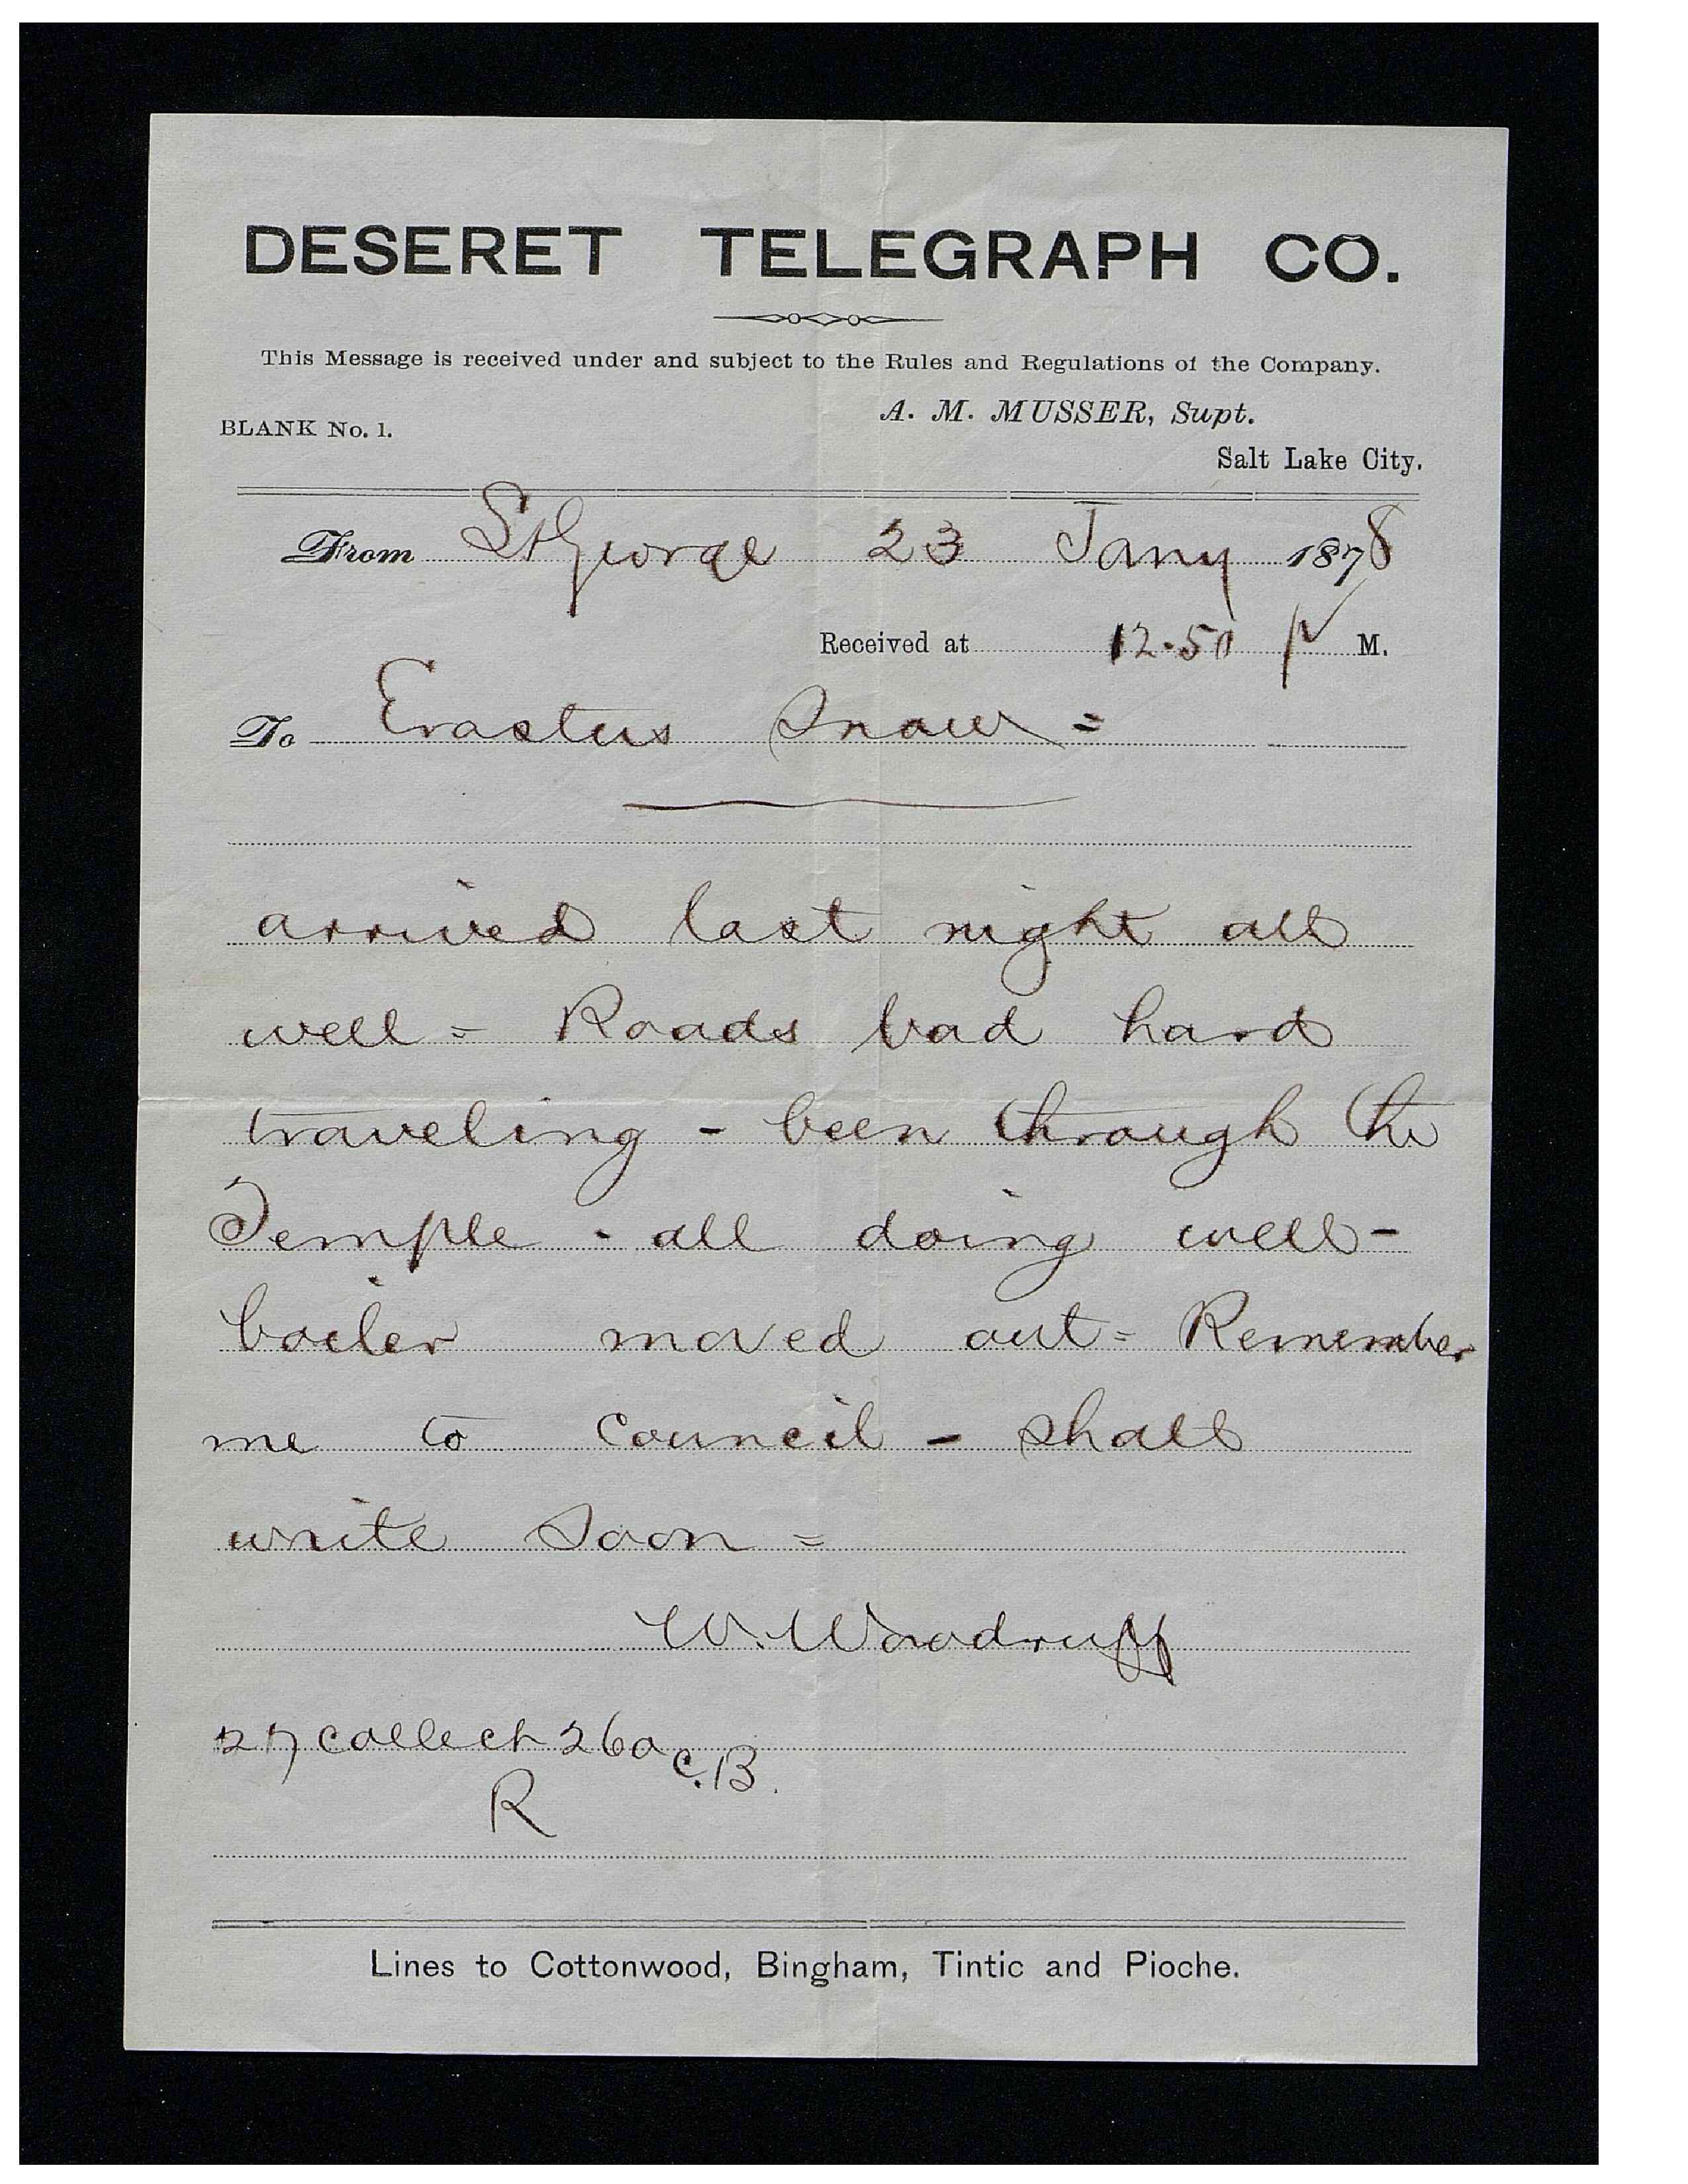 DESERET TELEGRAPH CO.
This Message is received under and subject to the Rules and Regulations of the Company.
A. M. MUSSER, Supt.
BLANK No. 1.
Salt Lake City.
From St George 23 Jany 1878
Received at 12.50 P M.
To Erastus Snow =
arrived last night all
well = Roads bad hard
traveling - been through the
Temple - all doing well -
boiler moved out = Remember
me to Council - shall
write Soon =
W. Woodruff
27 collect 260 C.B.
R
Lines to Cottonwood, Bingham, Tintic and Pioche.